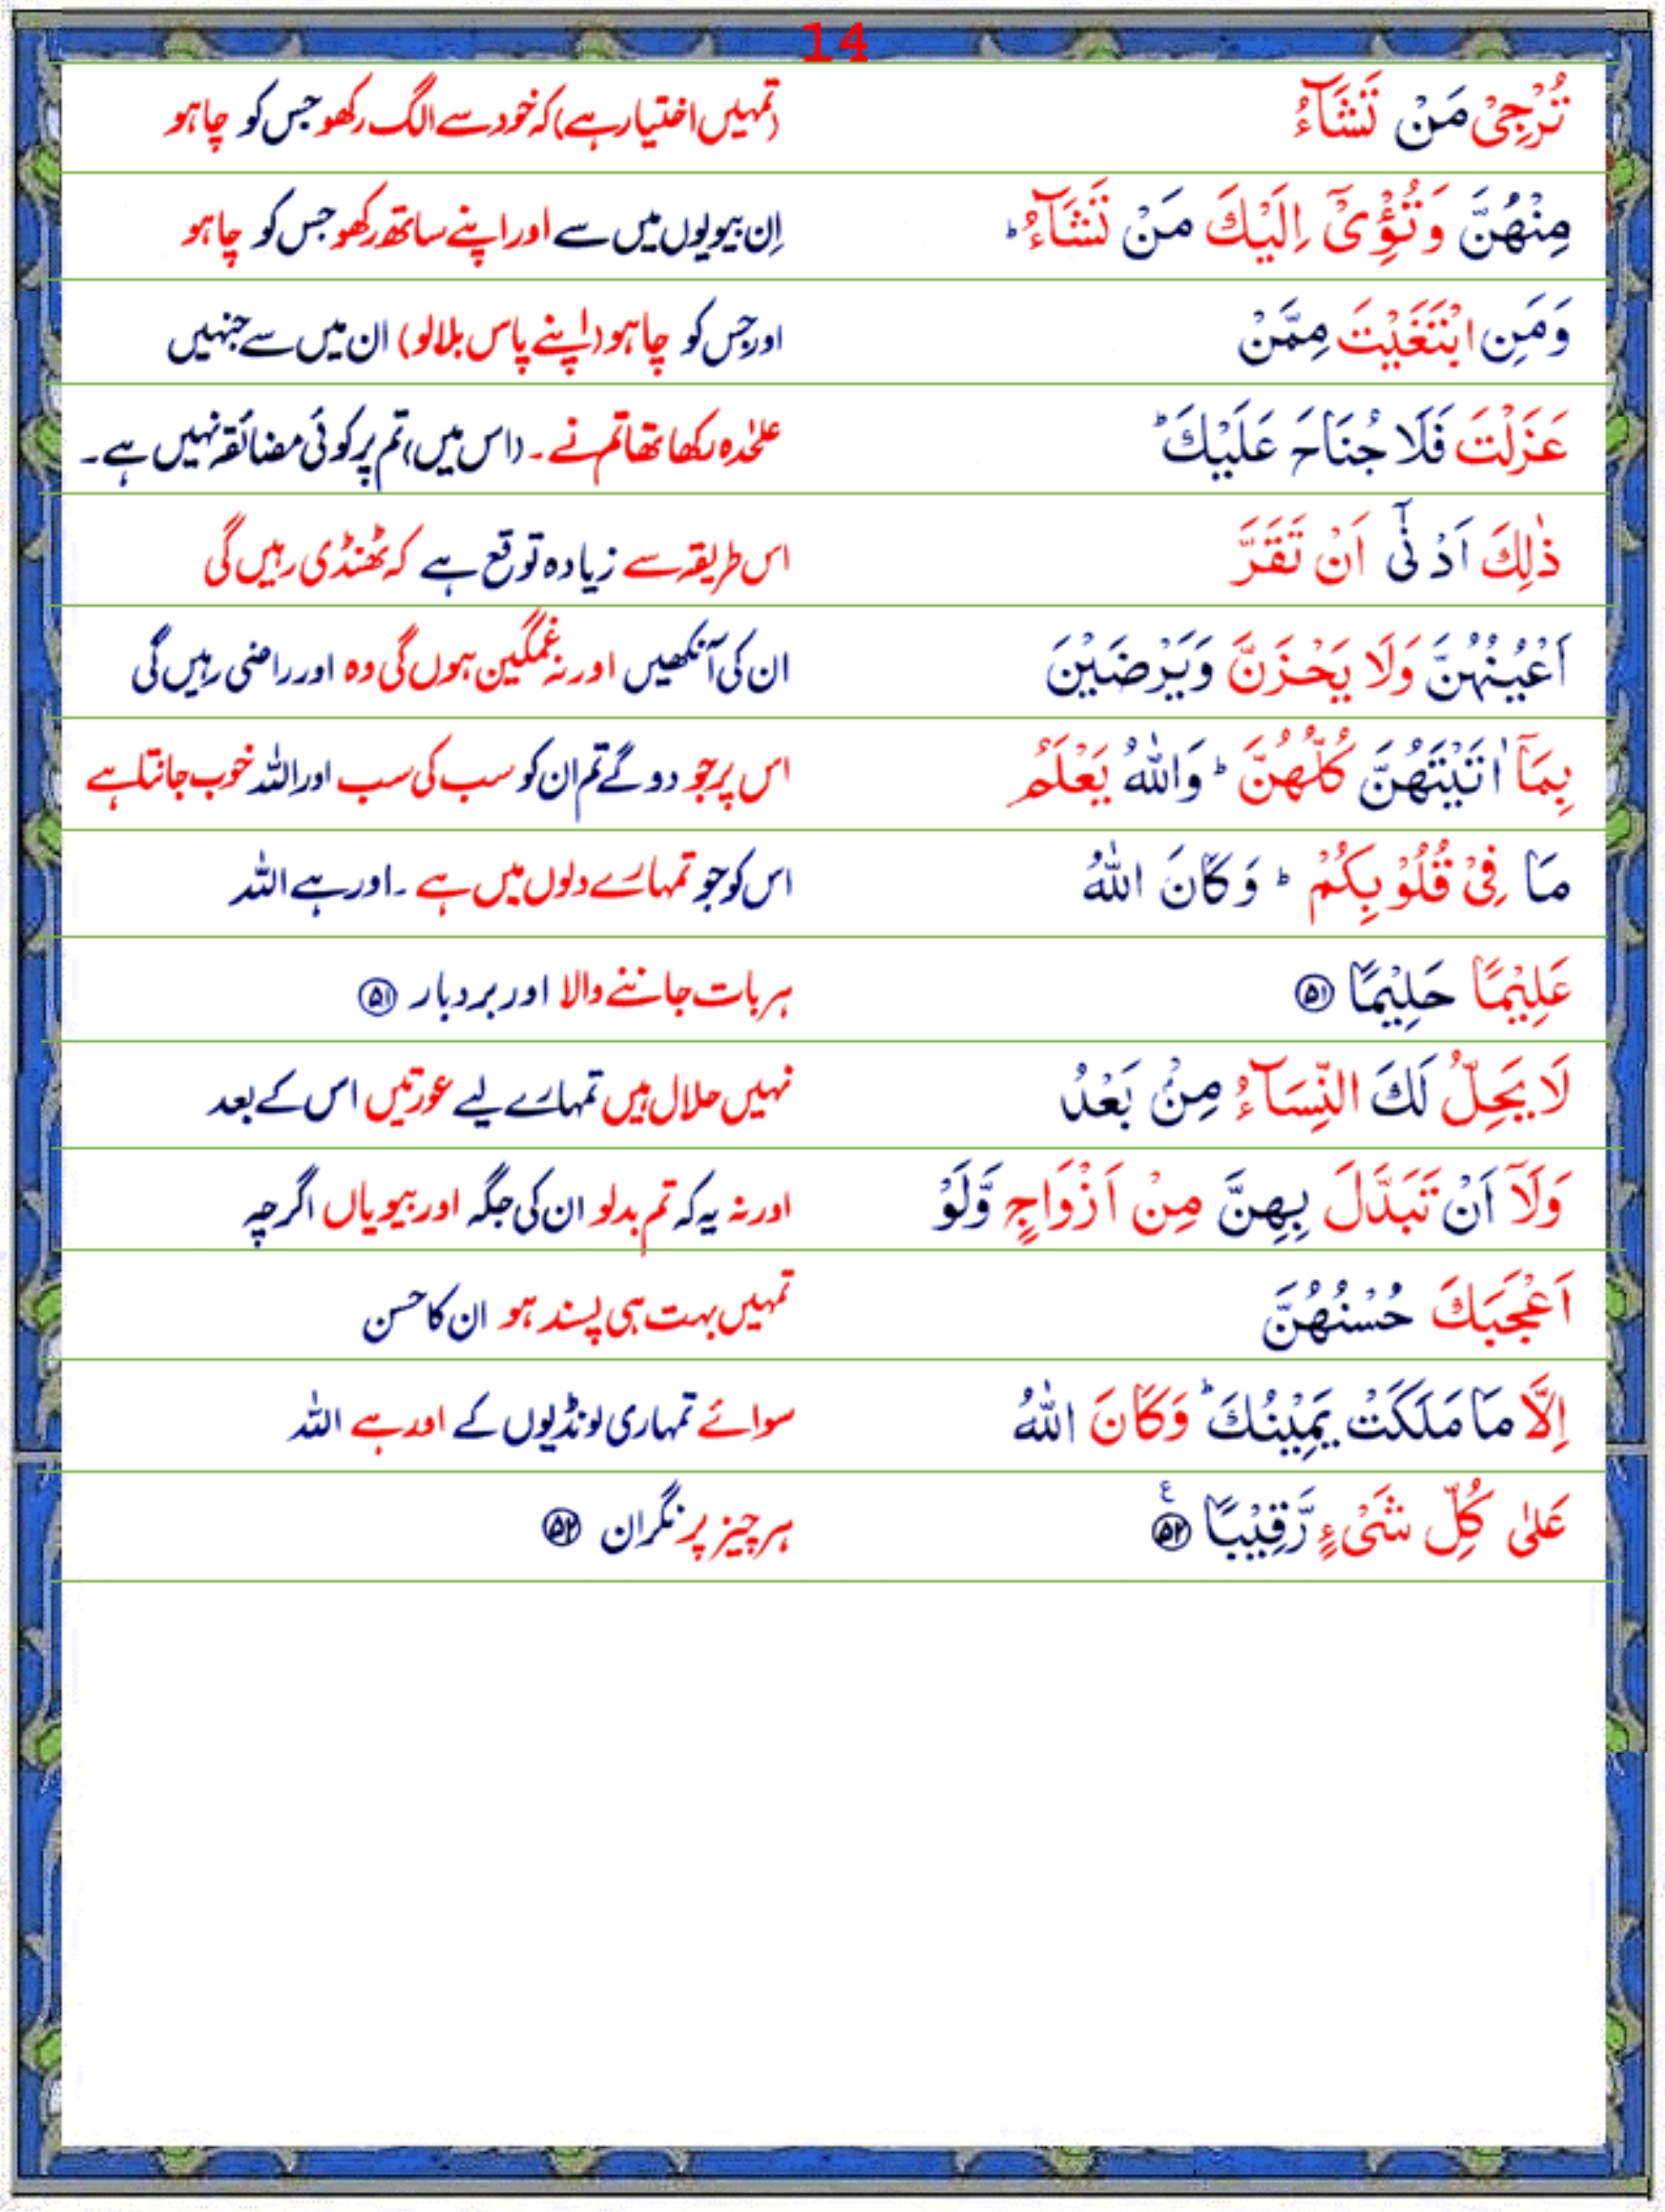 14
تُرْجِیْ مَنْ تَشَآءُ (تمہیں اختیار ہے) کہ خود سے الگ رکھو جس کو چاہو
مِنْهُنَّ وَتُـْٔوِیْۤ اِلَیْكَ مَنْ تَشَآءُ ؕ اِن بیویوں میں سے اور اپنے ساتھ رکھو جس کو چاہو
وَمَنِ ابْتَغَیْتَ مِمَّنْ اور جس کو چاہو (اپنے پاس بلالو) ان میں سے جنہیں
عَزَلْتَ فَلَا جُنَاحَ عَلَیْكَ ؕ علٰحدہ رکھا تھا تم نے۔ (اس میں) تم پر کوئی مضائقہ نہیں ہے۔
ذٰلِكَ اَدْنٰۤی اَنْ تَقَرَّ اس طریقہ سے زیادہ توقع ہے کہ ٹھنڈی رہیں گی
اَعْیُنُهُنَّ وَلَا یَحْزَنَّ وَیَرْضَیْنَ ان کی آنکھیں اور نہ غمگین ہوں گی وہ اور راضی رہیں گی
بِمَاۤ اٰتَیْتَهُنَّ كُلُّهُنَّ ؕ وَاللّٰهُ یَعْلَمُ اس پر جو دو گے تم ان کو سب کی سب اور اللہ خوب جانتا ہے
مَا فِیْ قُلُوْبِكُمْ ؕ وَكَانَ اللّٰهُ اس کو جو تمہارے دلوں میں ہے۔ اور ہے اللہ
عَلِیْمًا حَلِیْمًا ۵۱ ہر بات جاننے والا اور بردبار ۵۱
لَا یَحِلُّ لَكَ النِّسَآءُ مِنْۢ بَعْدُ نہیں حلال ہیں تمہارے لیے عورتیں اس کے بعد
وَلَاۤ اَنْ تَبَدَّلَ بِهِنَّ مِنْ اَزْوَاجٍ وَّلَوْ اور نہ یہ کہ تم بدلو ان کی جگہ اور بیویاں اگرچہ
اَعْجَبَكَ حُسْنُهُنَّ تمہیں بہت ہی پسند ہو ان کا حسن
اِلَّا مَا مَلَكَتْ یَمِیْنُكَ ؕ وَكَانَ اللّٰهُ سوائے تمہاری لونڈیوں کے اور ہے اللہ
عَلٰی كُلِّ شَیْءٍ رَّقِیْبًا ۵۲ ع ہر چیز پر نگران ۵۲